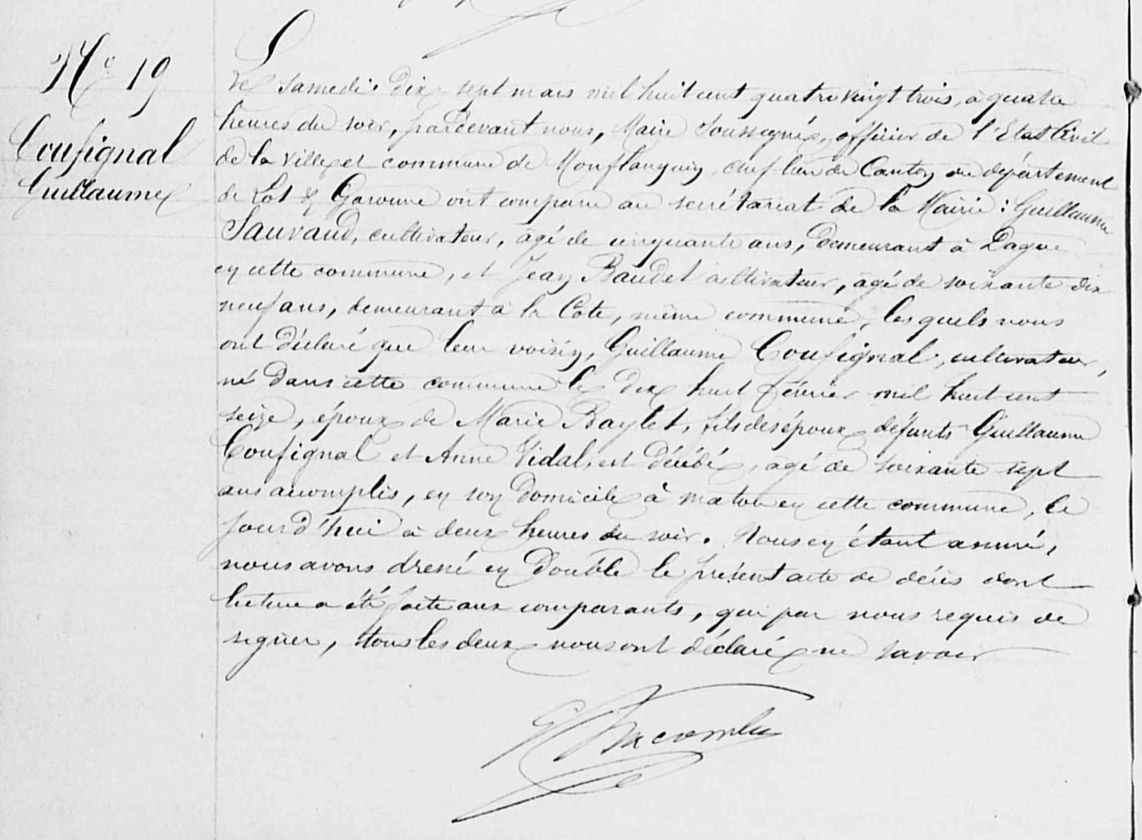 No 19
Coufignal
Guillaume
Le Samedi dix sept mars mil huit cent quatre vingt trois, à quatre
heures du soir, pardevant nous, Maire soussigné, officier de l'Etat Civil
de la ville et commune de Monflanquin, chef lieu de Canton au département
de Lot & Garonne ont comparu au secrétariat de la Mairie : Guillaume
Sauvaud, cultivateur, âgé de cinquante ans, demeurant à Dagu
en cette commune, et Jean Baudet cultivateur, âgé de soixante dix
neuf ans, demeurant à la Cote, même commune, lesquels nous
ont déclaré que leur voisin, Guillaume Coufignal, cultivateur,
né dans cette commune le dix huit février mil huit cent
seize, époux de Marie Baylet, fils des époux défunts Guillaume
Coufignal et Anne Vidal, est décédé, âgé de soixante sept
ans accomplis, en son domicile à maton en cette commune, ce
jourd'hui à deux heures du soir. Nous en étant assuré,
nous avons dressé en double le présent acte de décès dont
lecture a été faite aux comparants, qui par nous requis de
signer, tous les deux nous ont déclaré ne savoir